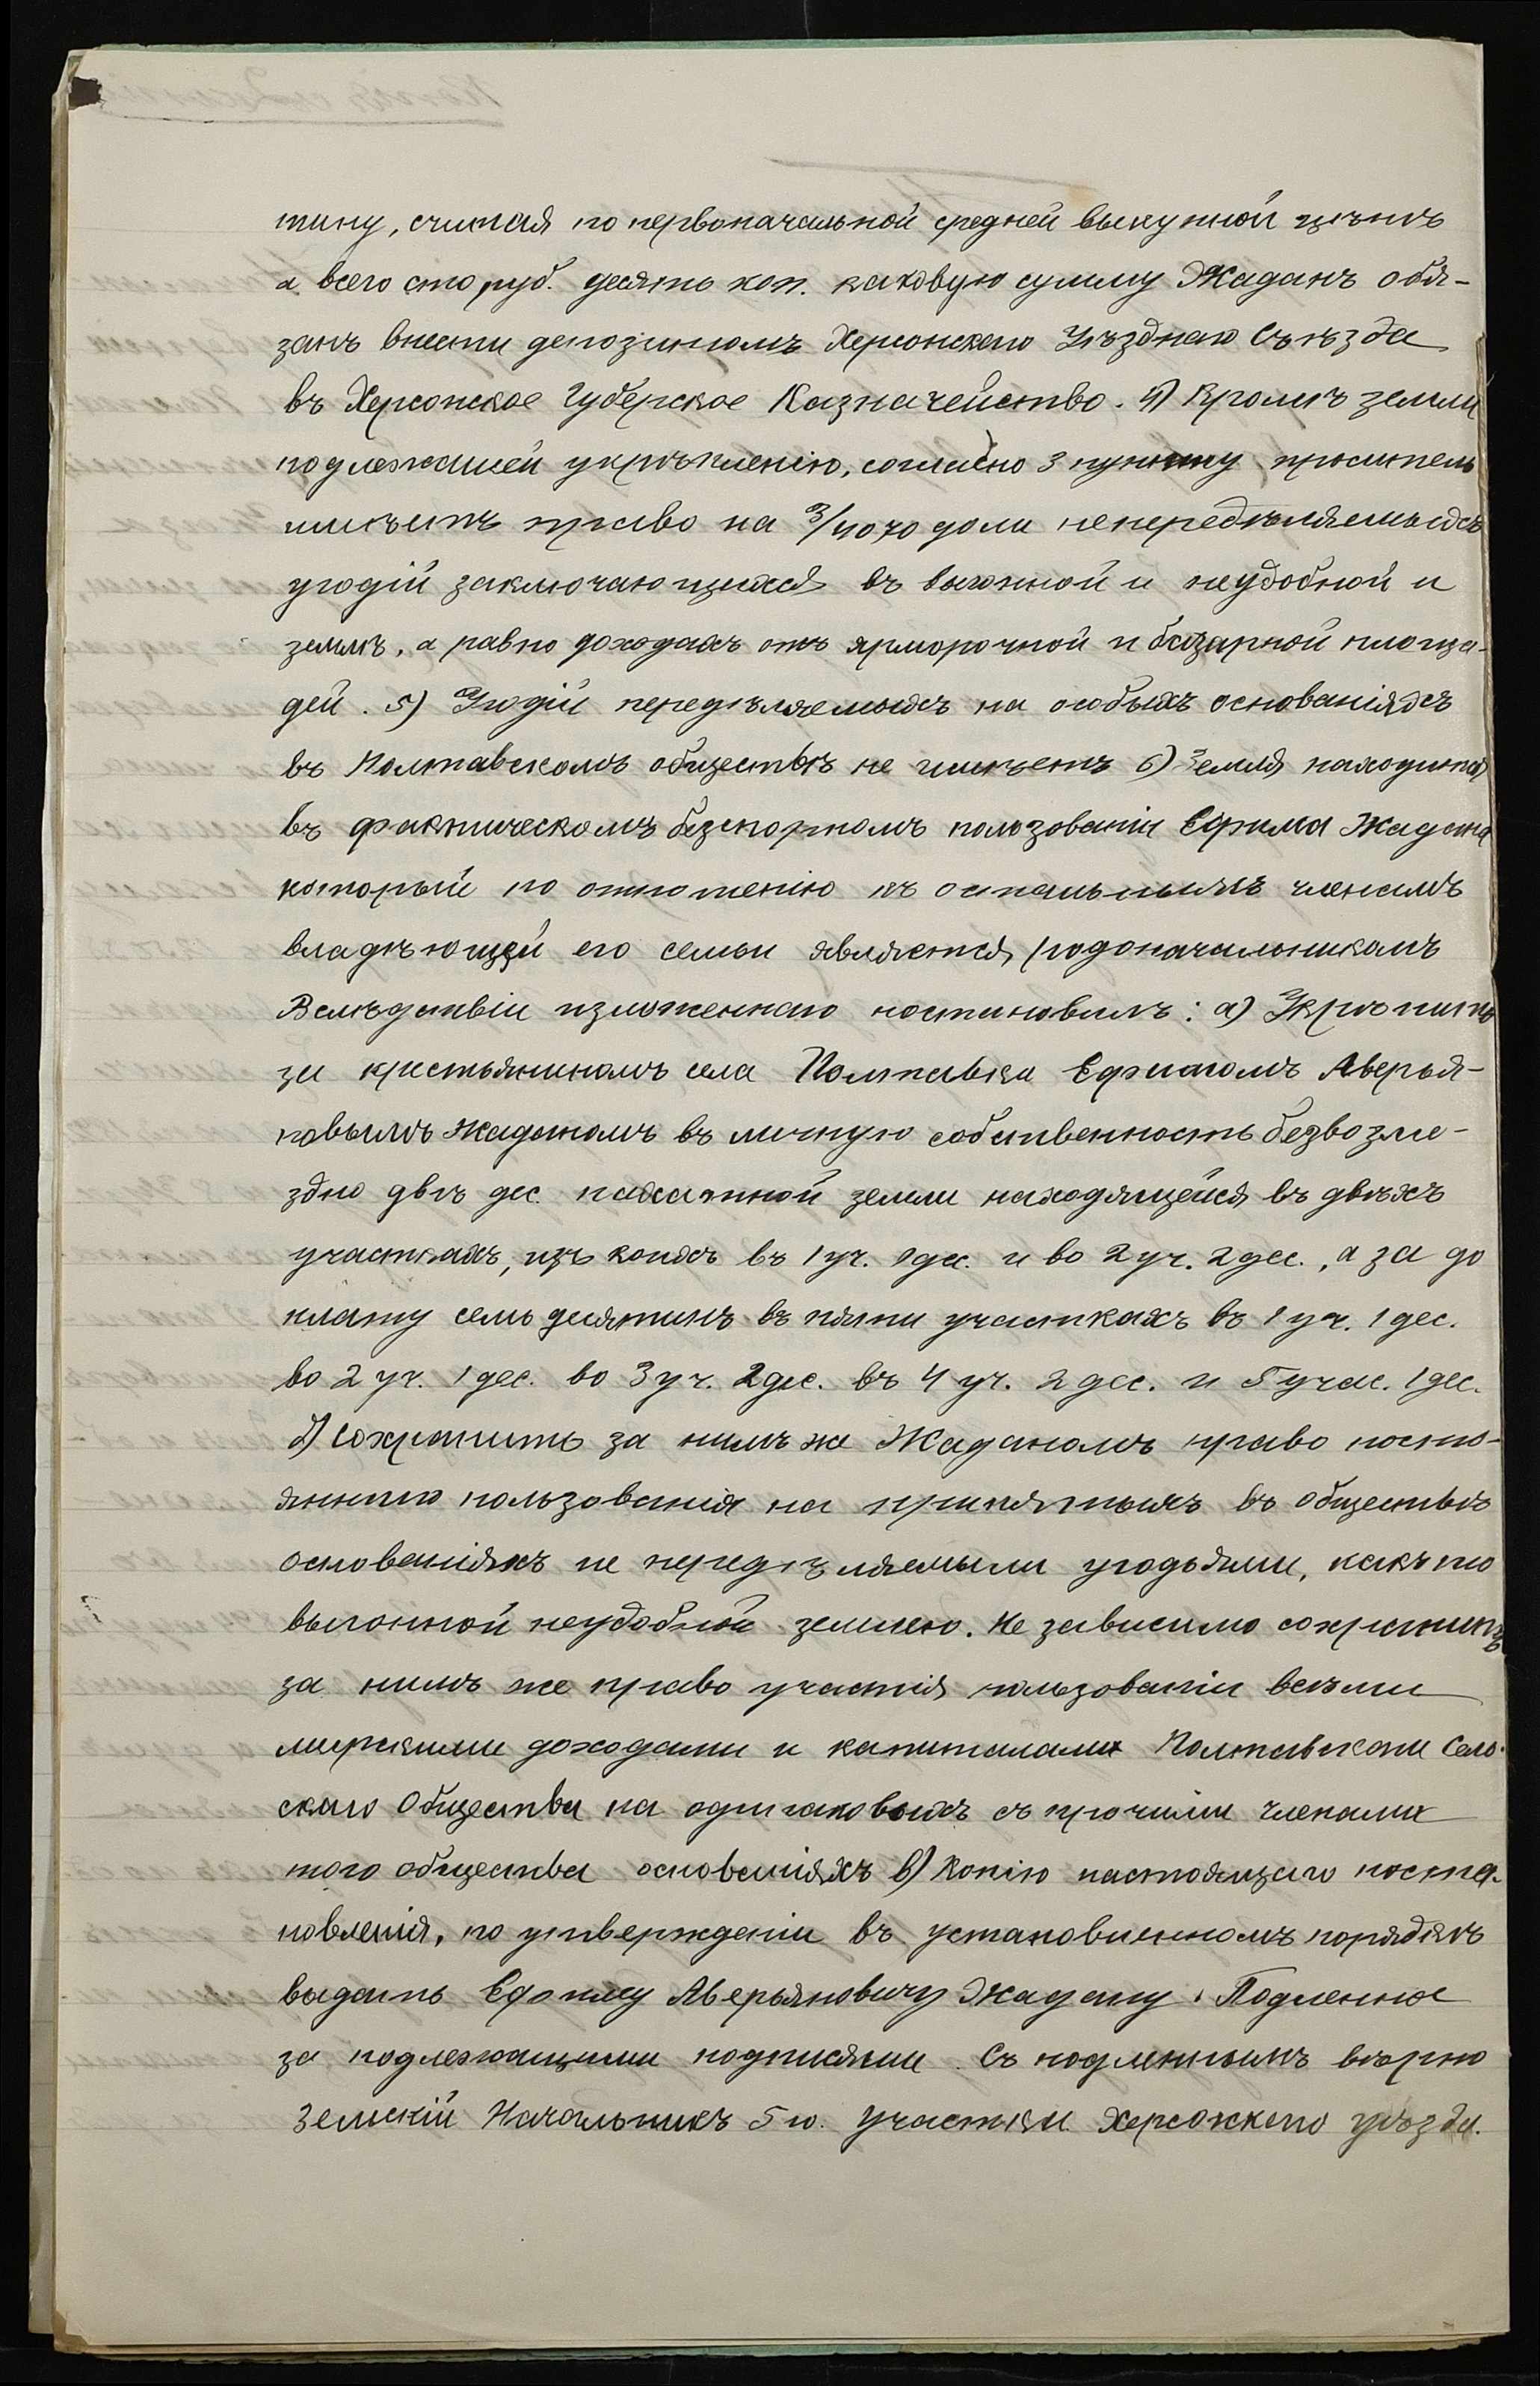 тину, считая по первоначальной средней выкупной цѣнѣ
а всего сто, руб. десять коп. каковую сумму Жаданъ обя-
занъ внести депозитомъ Херсонскаго Уѣзднаго Съѣзда
въ Херсонское Губерское Казначейство. 4) Кромѣ земли
подлежащей укрѣпленію, согласно 3 пункту проситель
имѣетъ право на 3/4070 доли непередѣляемыхъ
угодій заключающихся въ выгонной и неудобной и
землѣ, а равно доходахъ отъ ярморочной и базарной площа-
дей. 5) Угодій передѣляемыхъ на особыхъ основаніяхъ
въ Полтавскомъ обществѣ не имѣетъ 6) Земля находится
въ фактическомъ безспорномъ пользованіи Ефима Жадана
который по отношенію къ остальнымъ членамъ
владѣющей его семьи является родоначальникомъ
Вслѣдствіи изложеннаго постановилъ: а) Укрѣпить
за крестьяниномъ села Полтавка Ефимомъ Аверья-
новымъ Жаданомъ въ личную собственность безвозме-
здно двѣ дес. пахатной земли находящейся въ двухъ
участкахъ, изъ коихъ въ 1 уч. дес. и во 2 уч. 2 дес., а за до
плату семь десятинъ въ пяти участкахъ въ 1 уч. 1 дес.
во 2 уч. 1 дес. во 3 уч. 2 дес. въ 4 уч. 2 дес. и 5 учас. 1 дес.
б) Сохранить за нимъ же Жаданомъ право посто-
яннаго пользованія на принятыхъ въ обществѣ
основаніяхъ не передѣляемыми угодьями, какъ то
выгонной неудобной землею. Не зависимо сохранить
за нимъ же право участія пользованіи всѣми
мирскими доходами и капиталами Полтавскаго Сель-
скаго Общества на одинаковыхъ съ прочими членами
того общества основаніяхъ в) Копію настоящаго поста-
новленія, по утвержденіи въ установленномъ порядкѣ
выдать Ефиму Аверьяновичу Жадану. Подленное
за подлежащими подписями. Съ подленнымъ вѣрно
Земскій Начальникъ 5 го. участка Херсонскаго уѣзда.